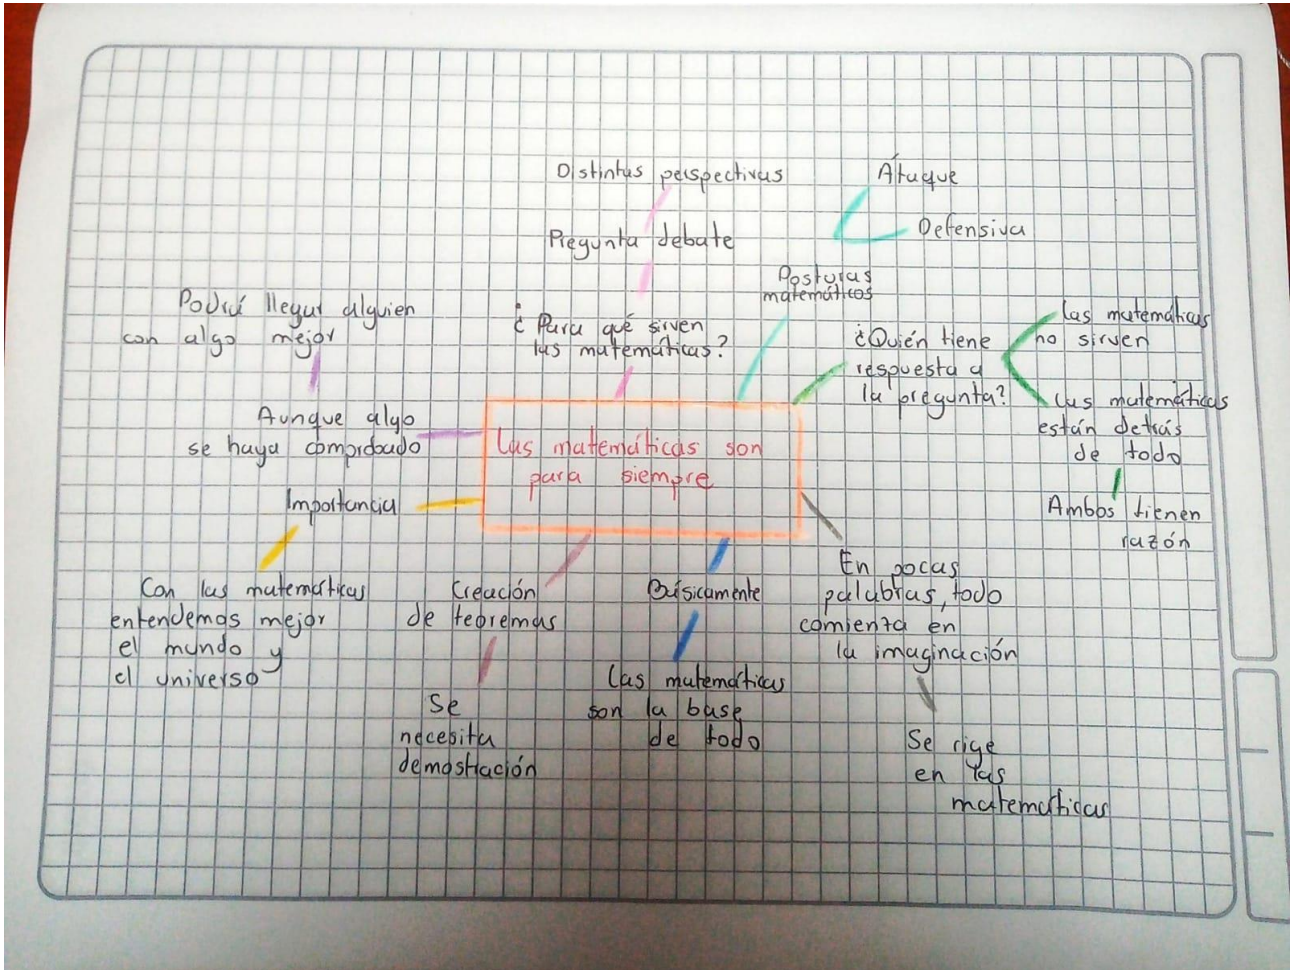 Distintas perspectivas
Pregunta debate
¿Para qué sirven
las matemáticas?
Ataque
Defensiva
Posturas
matemáticos
¿Quién tiene
respuesta a
la pregunta?
Las matemáticas
no sirven
Las matemáticas
están detrás
de todo
Ambos tienen
razón
Podrá llegar alguien
con algo mejor
Aunque algo
se haya comprobado
Las matemáticas son
para siempre
Importancia
Con las matemáticas
entendemos mejor
el mundo y
el universo
Creación
de teoremas
Se
necesita
demostración
Básicamente
Las matemáticas
son la base
de todo
En pocas
palabras, todo
comienza en
la imaginación
Se rige
en las
matemáticas